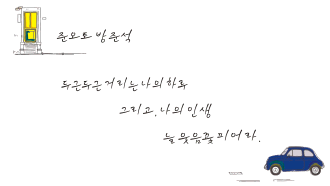 준오토 방윤석
두근두근거리는 나의 하루
그리고, 나의 인생
늘 웃음꽃 피어라.